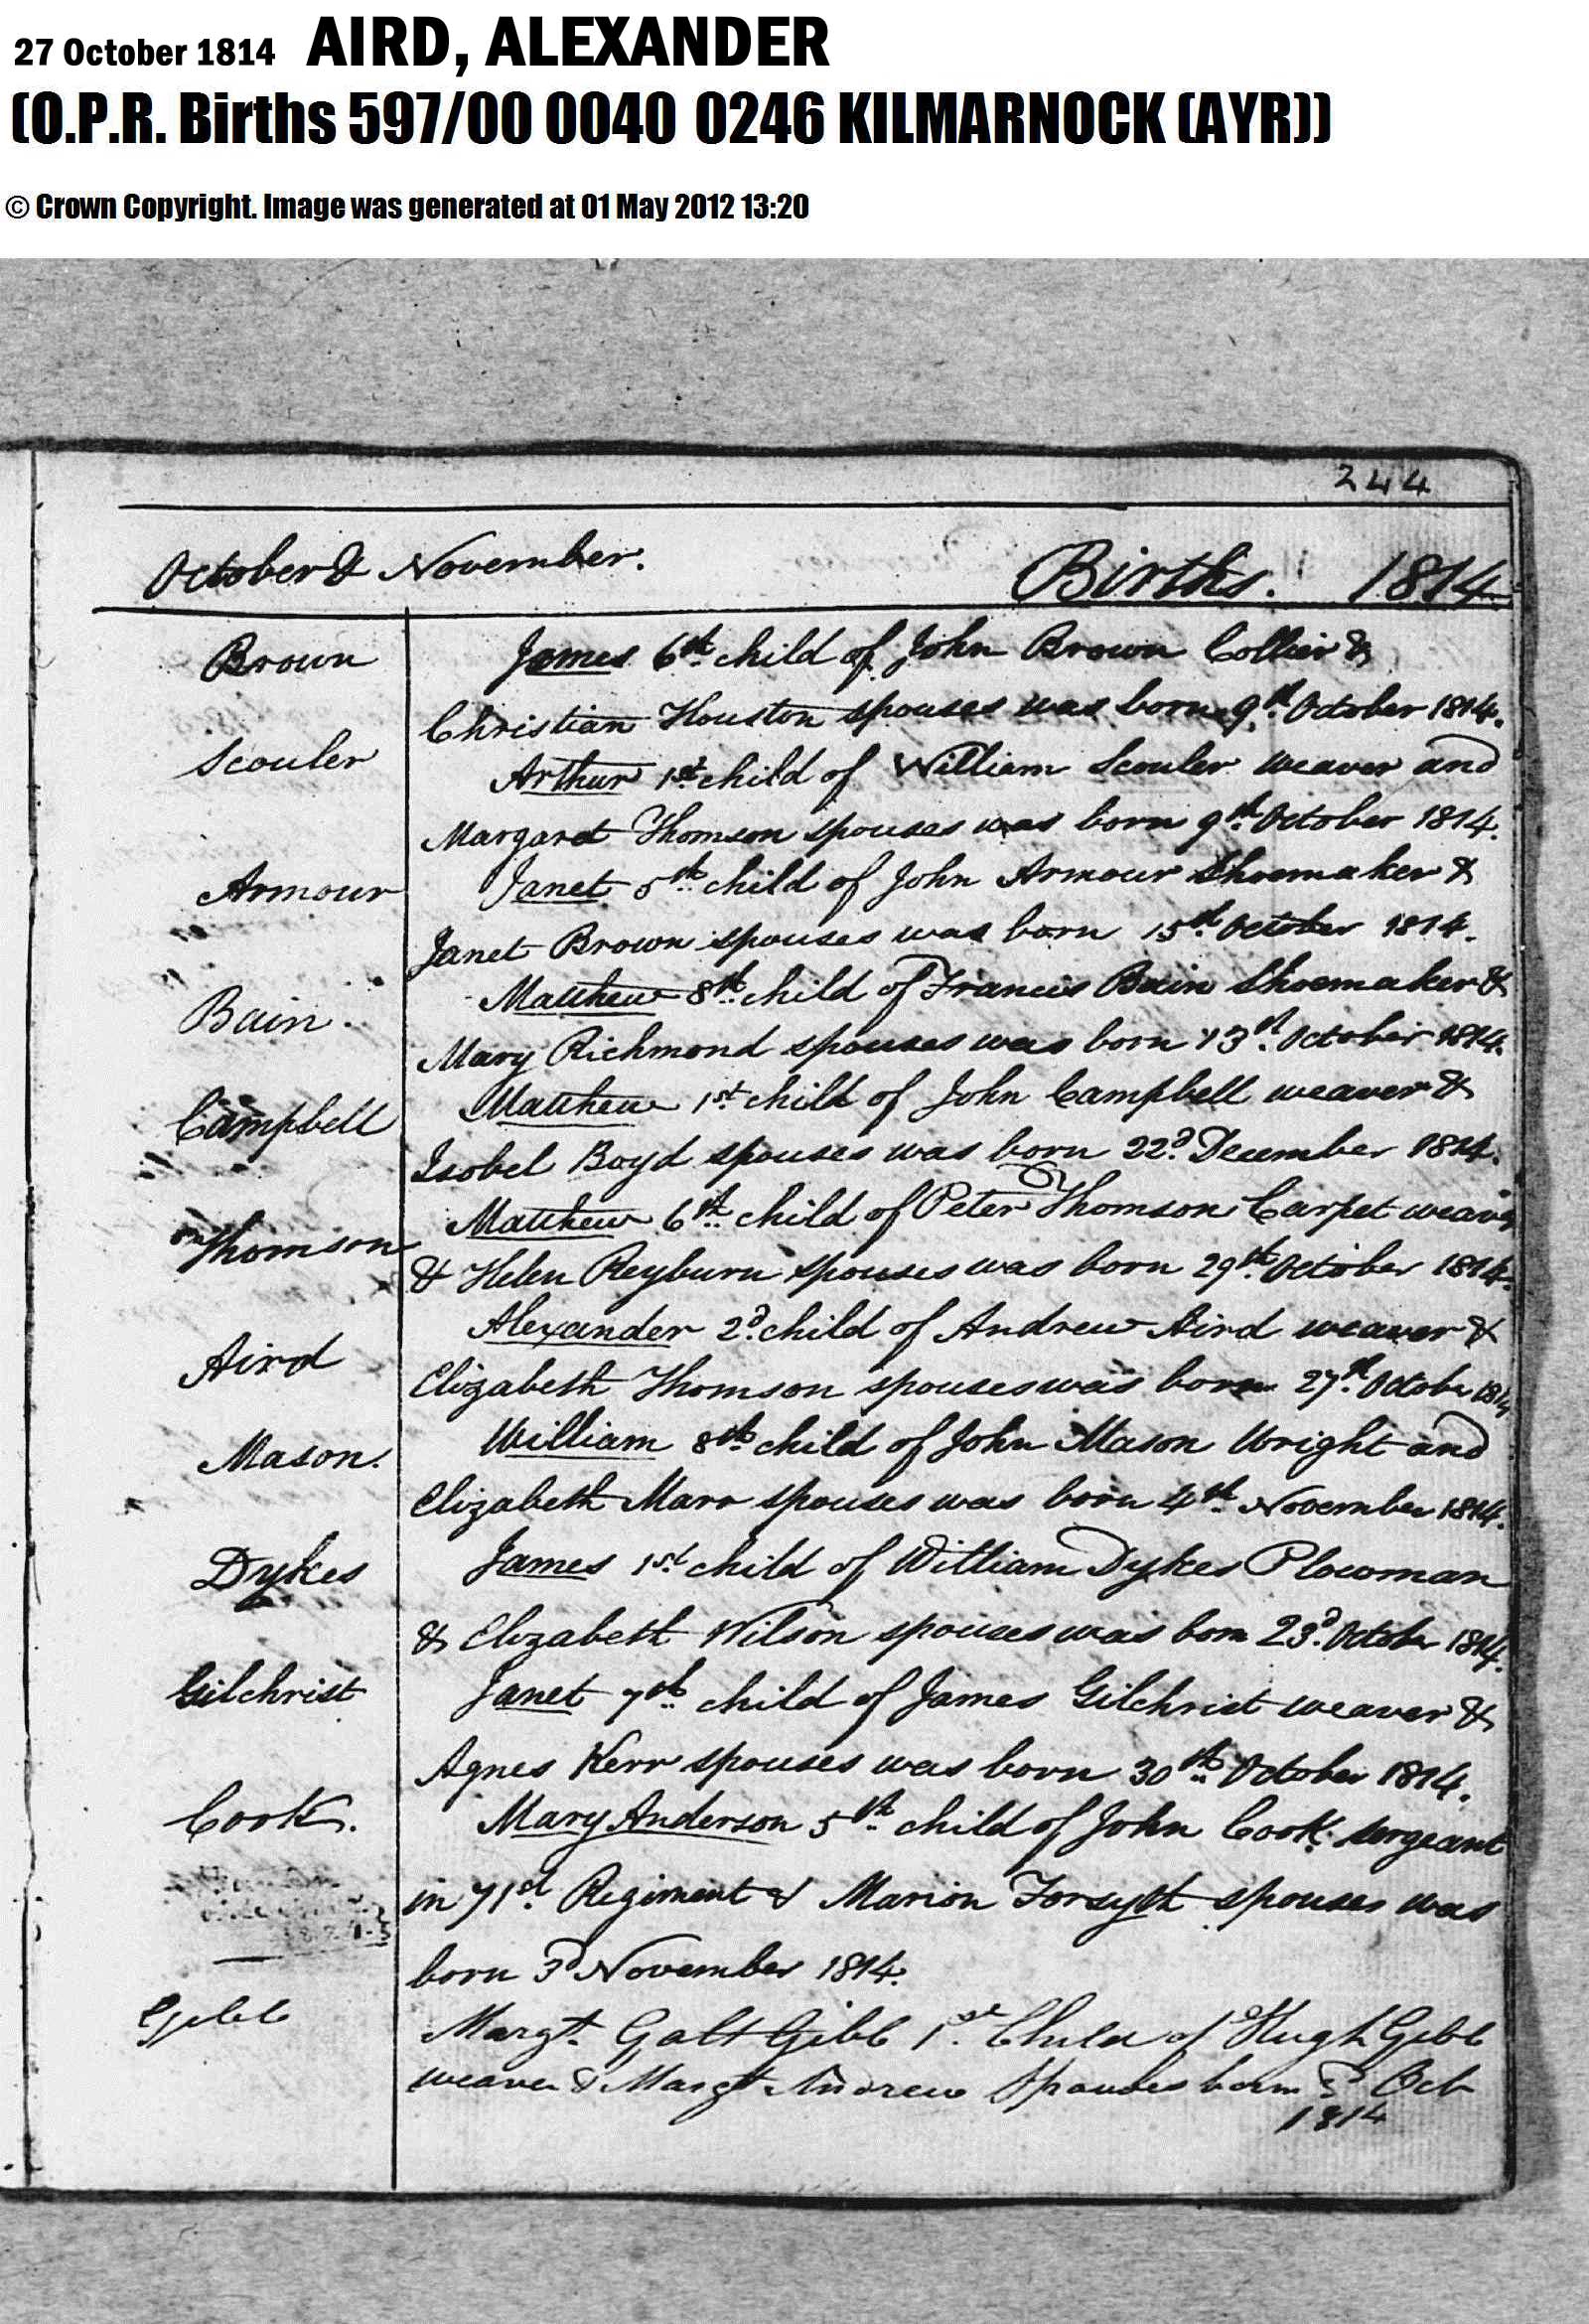 27 October 1814 AIRD, ALEXANDER
(O.P.R. Births 597/00 0040 0246 KILMARNOCK (AYR))
© Crown Copyright. Image was generated at 01 May 2012 13:20
244
October & November. Births. 1814
Brown James 6th child of John Brown Collier &
Christian Houston spouses was born 9th October 1814.
Scouler Arthur 1st child of William Scouler weaver and
Margaret Thomson spouses was born 9th October 1814.
Armour Janet 5th child of John Armour Shoemaker &
Janet Brown spouses was born 15th October 1814.
Bain. Matthew 8th child of Francis Bain Shoemaker &
Mary Richmond spouses was born 13th October 1814.
Campbell Matthew 1st child of John Campbell weaver &
Isobel Boyd spouses was born 22d December 1814.
Thomson Matthew 6th child of Peter Thomson Carpet weaver
& Helen Reyburn spouses was born 29th October 1814.
Aird Alexander 2d child of Andrew Aird weaver &
Elizabeth Thomson spouses was born 27th October 1814
Mason. William 8th child of John Mason Wright and
Elizabeth Marr spouses was born 4th November 1814.
Dykes James 1st child of William Dykes Plowman
& Elizabeth Wilson spouses was born 23d October 1814.
Gilchrist Janet 7th child of James Gilchrist weaver &
Agnes Kerr spouses was born 30th October 1814.
Cook. Mary Anderson 5th child of John Cook sergeant
in 71st Regiment & Marion Forsyth spouses was
born 3d November 1814.
Gibb Margt. Galt Gibb 1st Child of Hugh Gibb
weaver & Margt Andrew Spouses born Oct
1814